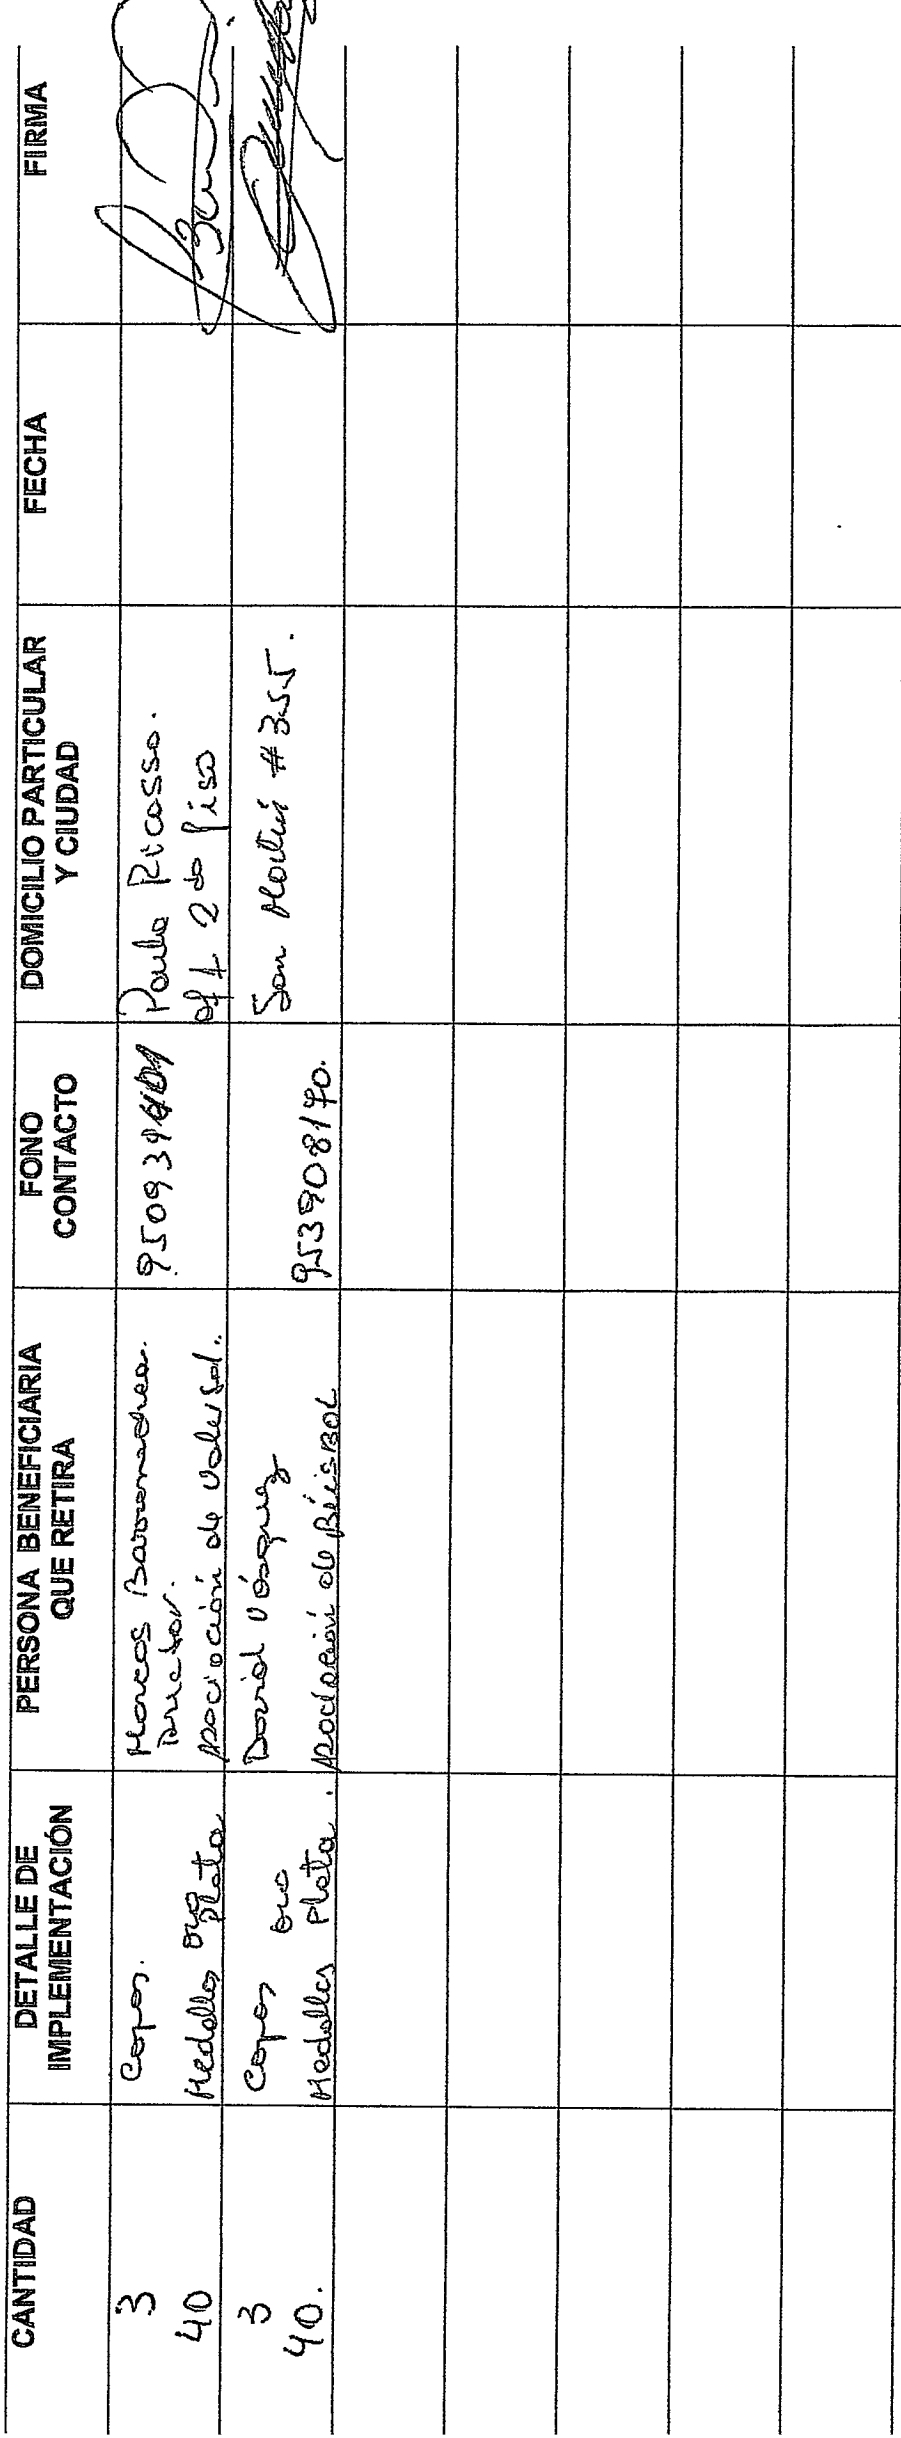 CANTIDAD
DETALLE DE
IMPLEMENTACIÓN
PERSONA BENEFICIARIA
QUE RETIRA
FONO
CONTACTO
DOMICILIO PARTICULAR
Y CIUDAD
FECHA
FIRMA
3
40
Copas.
Medallas oro
plata
Marcos Barrenechea.
Director.
Asociación de
9509
Pablo Picasso.
of 1 2do piso
3
40.
Copas oro
Medallas Plata.
David Vásquez
Asociación de Béisbol
953908170.
San Martín #355.